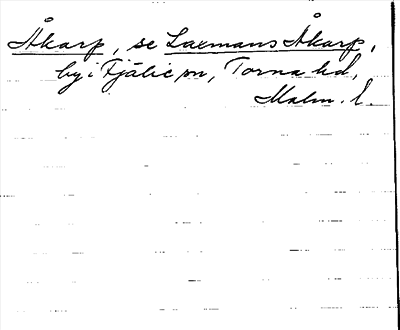 Åkarp, se Laxmans Åkarp,
by i Fjälie sn, Torna hd,
Malm. l.